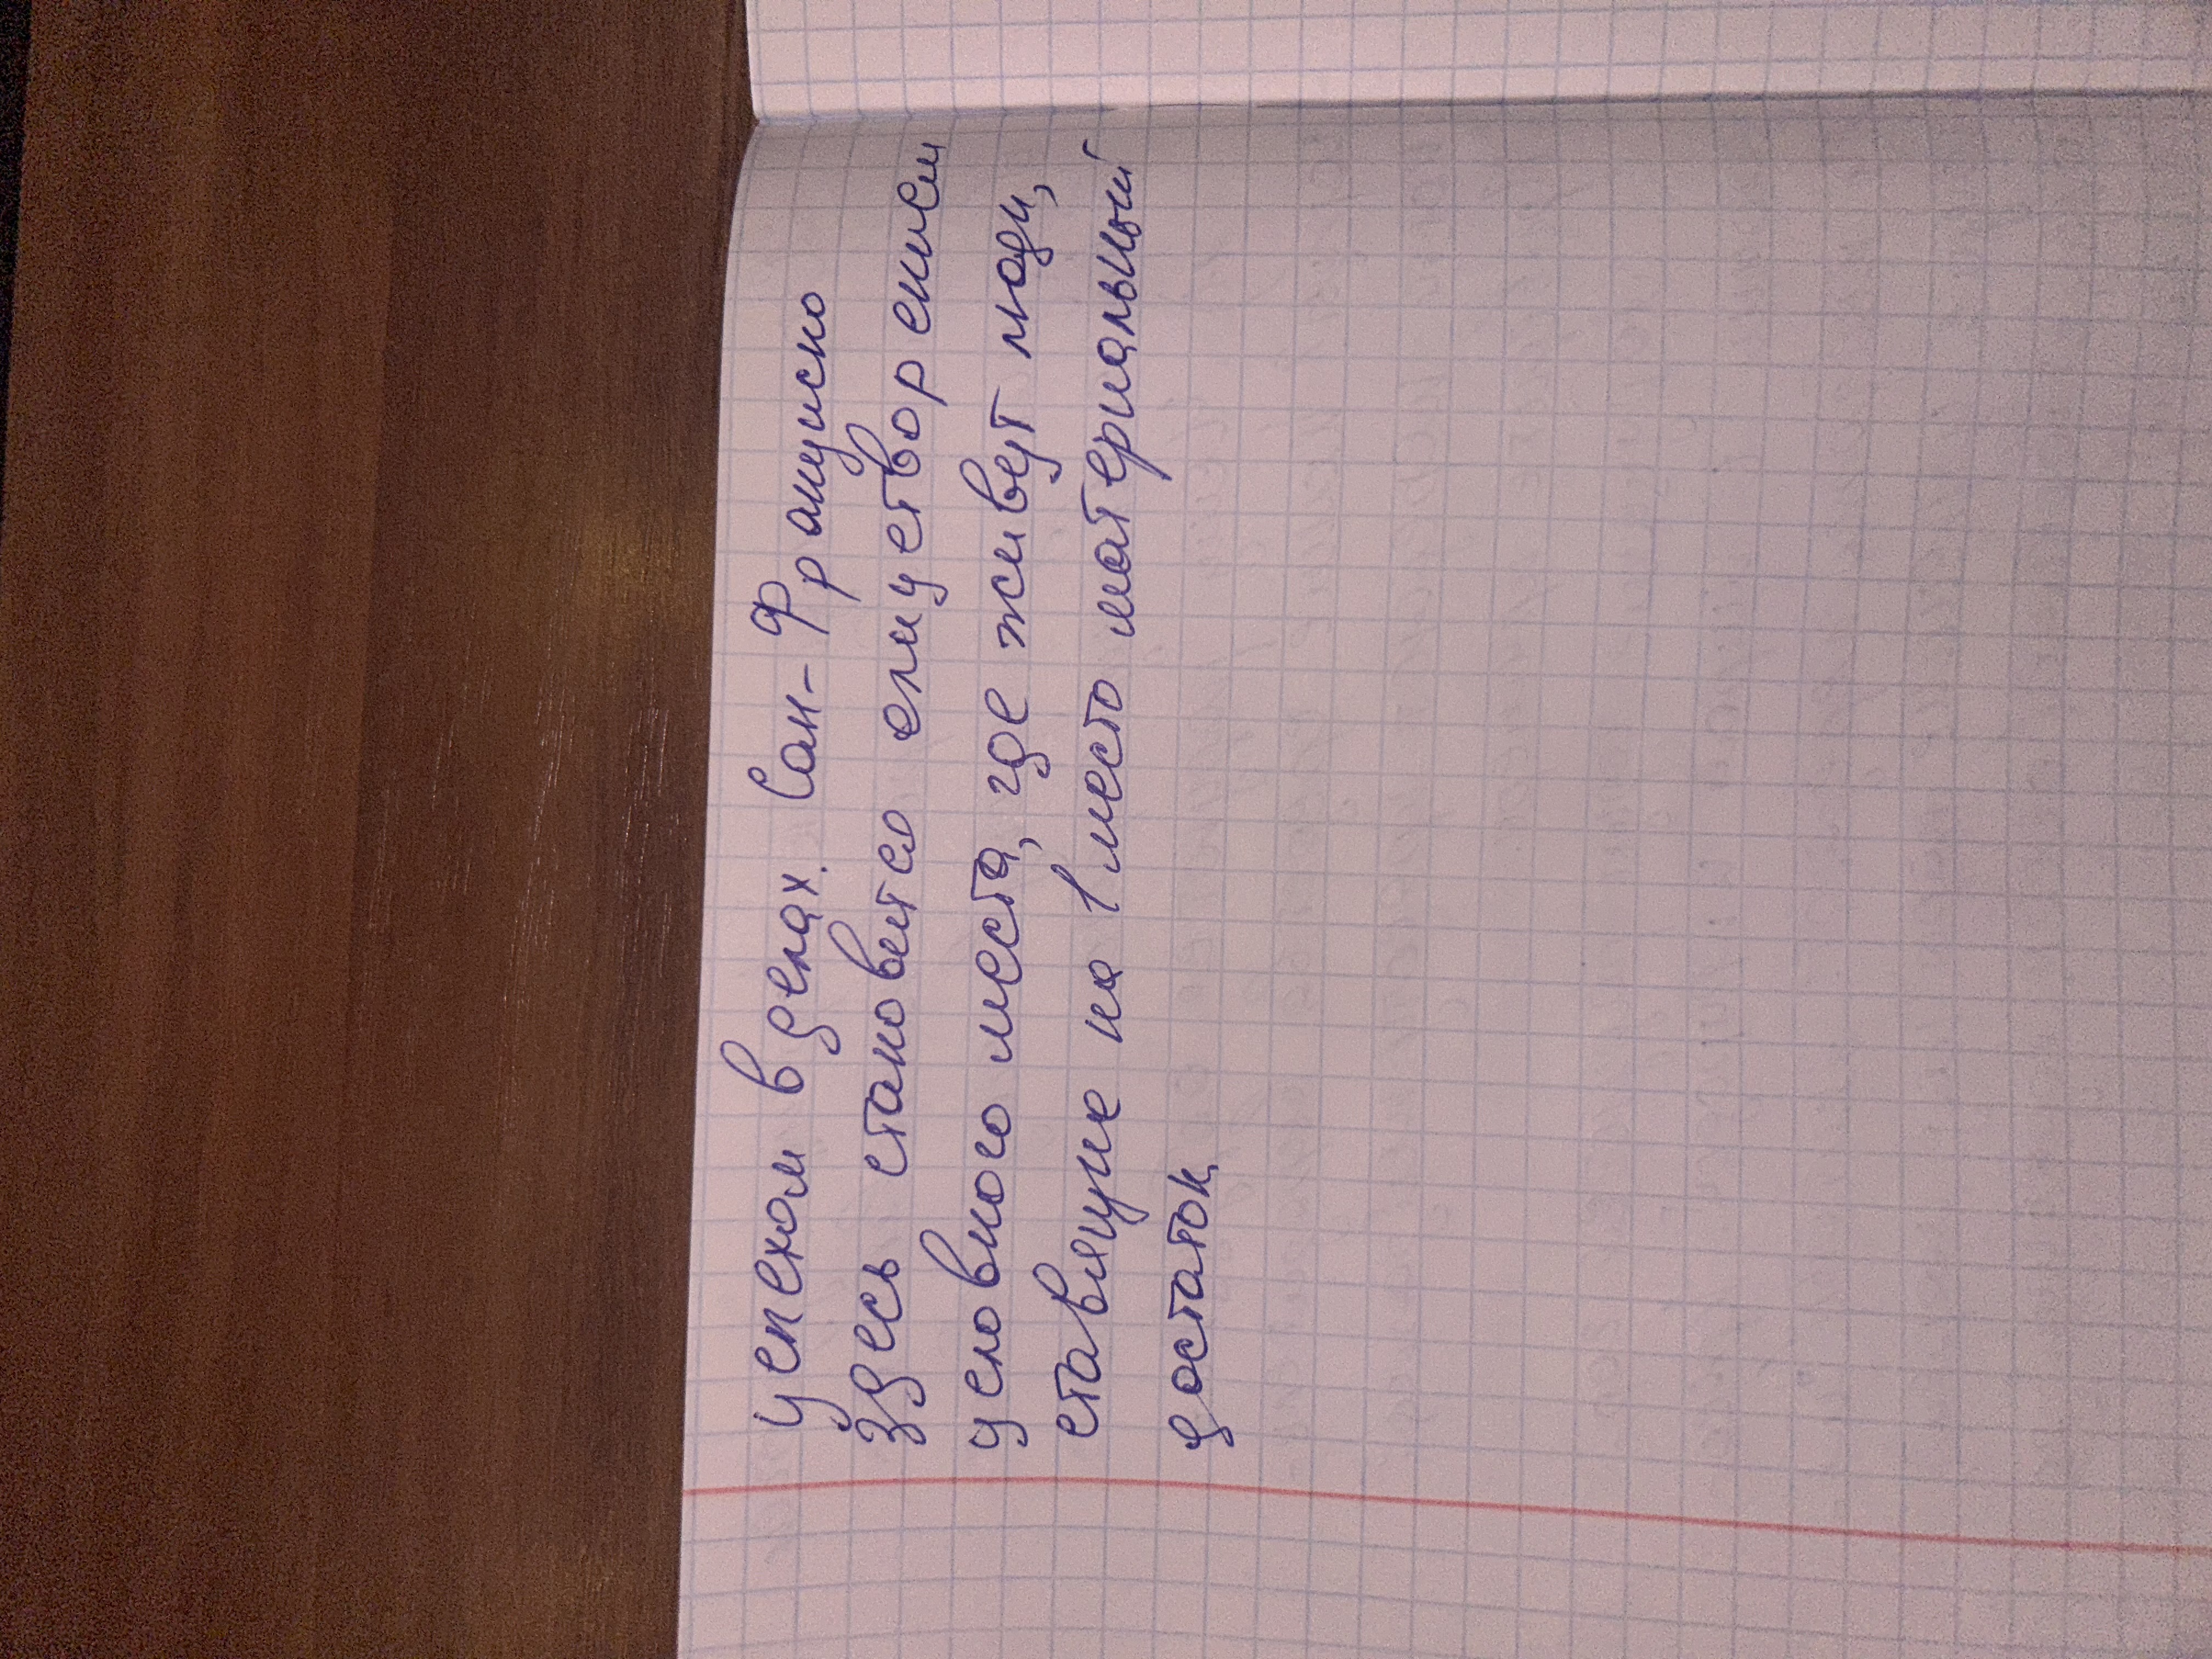 успехом в делах. Сан-Франциско
здесь становится олицетворением
условного места, где живут люди,
ставящие на 1 место материальный
достаток